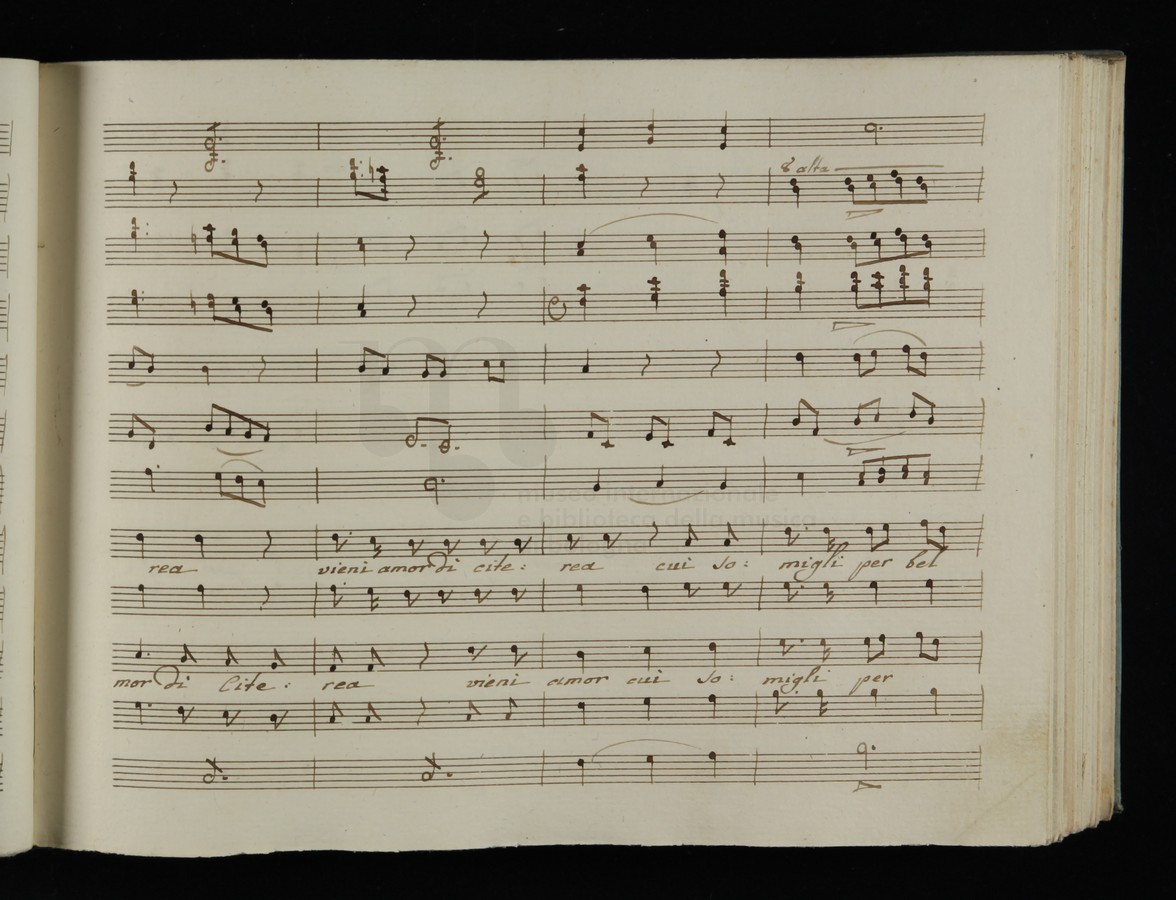 8 alta
rea vieni amor di cite: rea cui so: migli per bel
mor di Cite: rea vieni amor cui so: migli per
museo internazionale
e biblioteca della musica